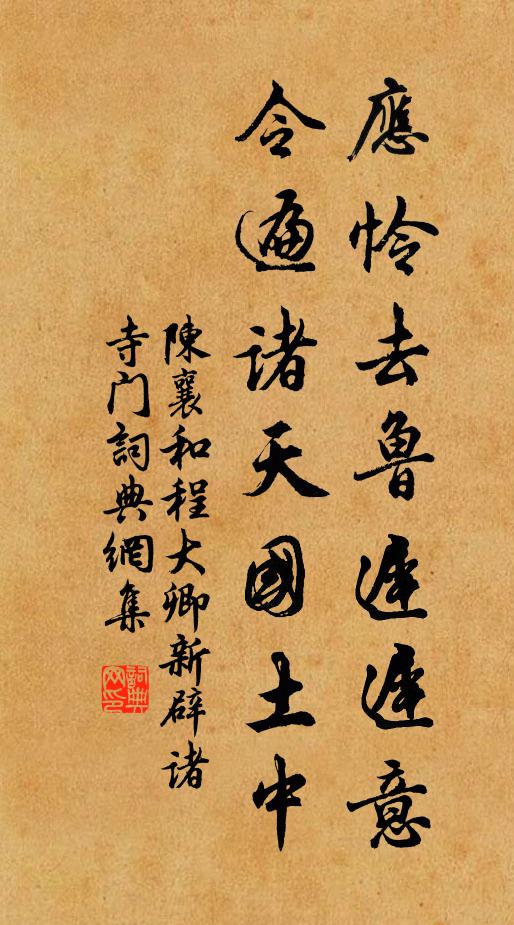 應憐去魯遲遲意
令遍諸天國土中
陳襄和程大卿新辟諸
寺门詞典網集
詞典網印